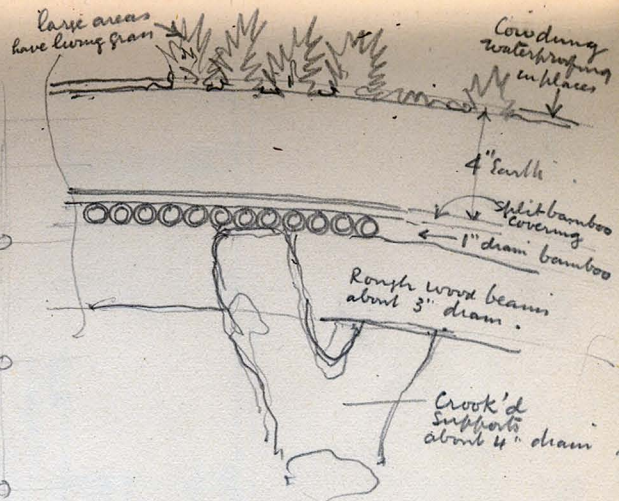 large areas
have living grass
Cowdung
waterproofing
in places
4" Earth
Split bamboo
covering
1" diam bamboo
Rough wood beams
about 3" diam.
Crook'd
Supports
about 4" diam